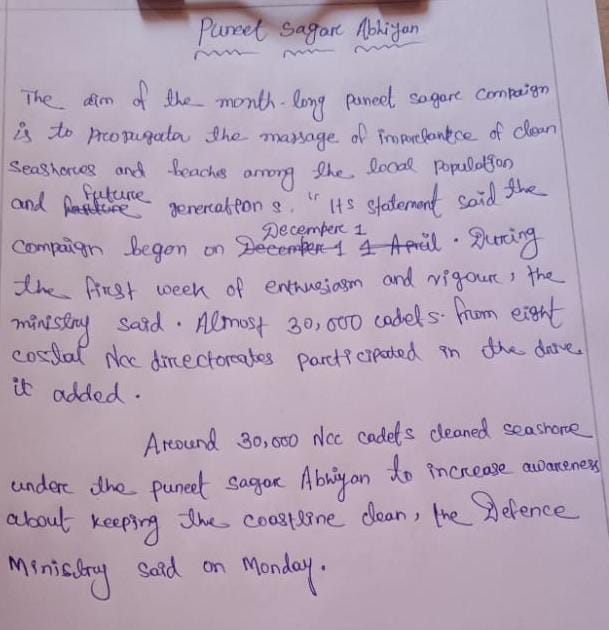 Puneet Sagar Abhiyan
The aim of the month-long puneet sagare compaign
is to propugata the massage of importantce of clean
Seashores and beaches among the local population
and future generations. "Its statement said the
December 1
compaign began on December 1 1 April. During
the first week of enthusiasm and vigour, the
ministry said. Almost 30,000 cadets. from eight
costal Ncc directoreates participated in the drive
it added.
Around 30,000 Ncc cadets cleaned seashore
under the puneet sagar Abhiyan to increase awareness
about keeping the coastline clean, the Defence
Ministry said on Monday.